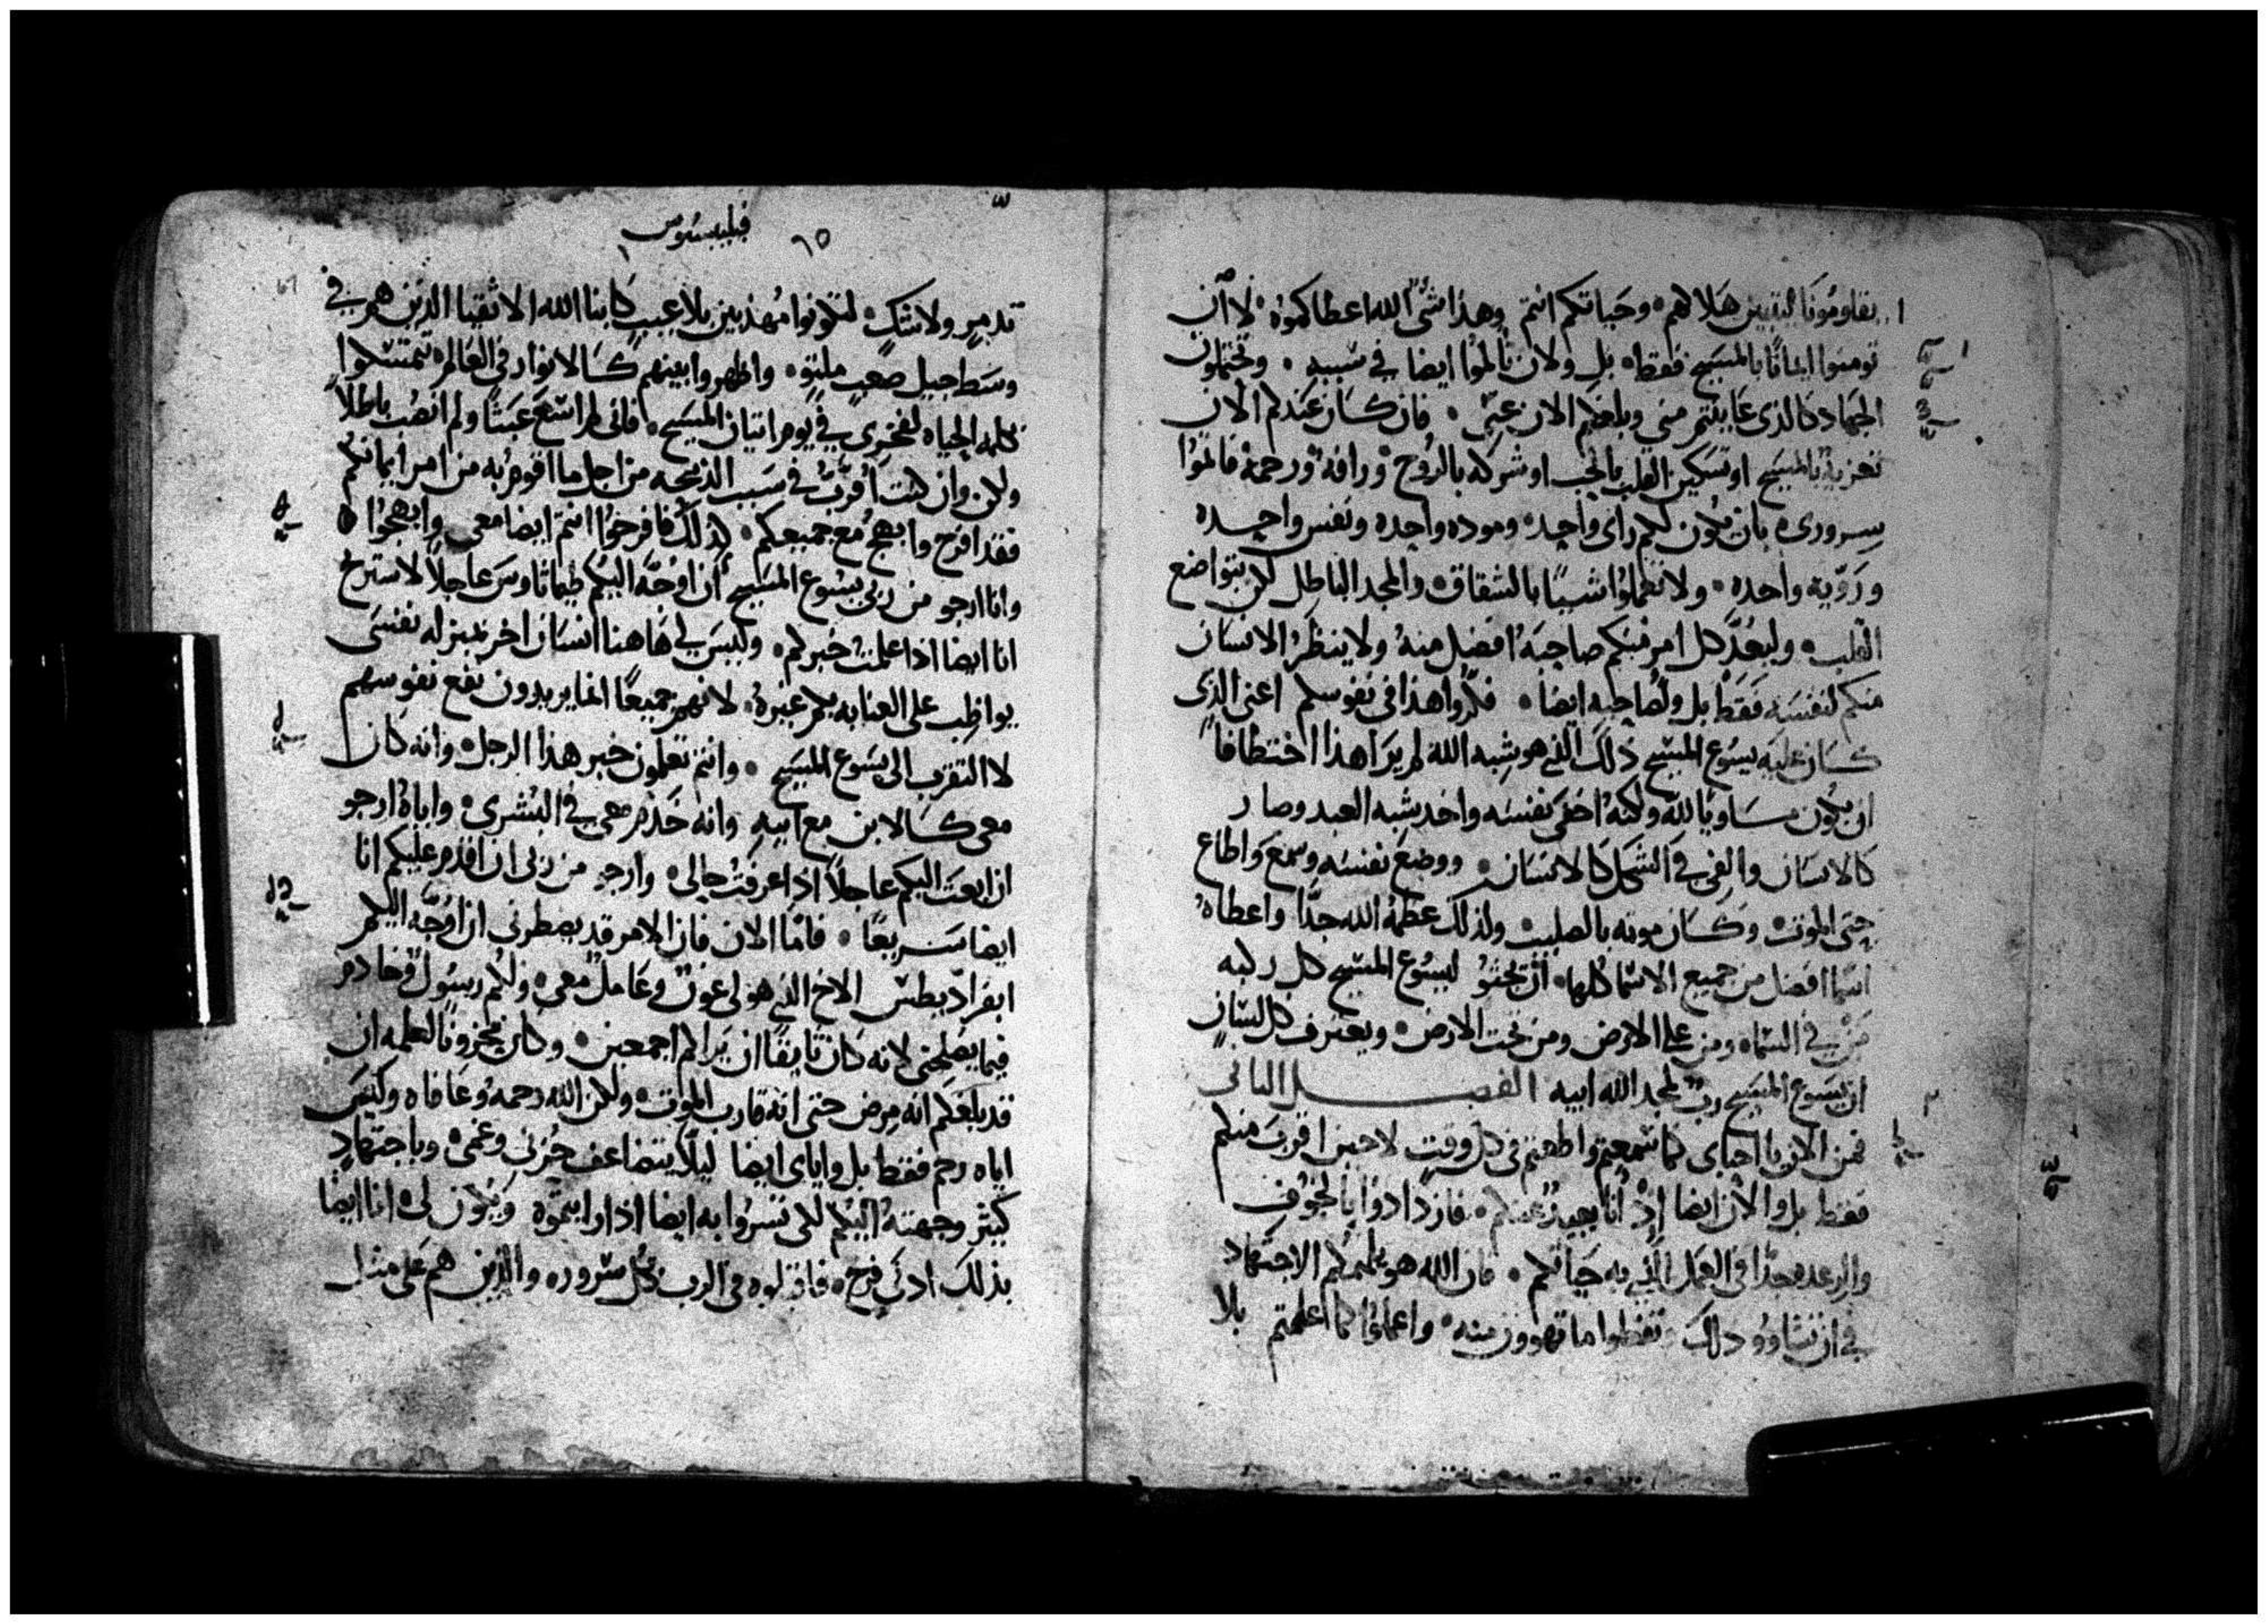 يقاومونا ليتبين هلاكهم وحياتكم انتم وهذا شئ الله اعطاكموه لا ان
تومنوا ايمانًا بالمسيح فقط بل ولان تالموا ايضا في سببه وتحتملون
الجهاد كالذى عاينتم منى وبلغكم الان عنى فان كان عندكم الان
تعزية بالمسيح او تسكين القلب بالحب او شركه بالروح ورافة ورحمة فاتموا
سرورى بان يكون لكم راى واحد وموده واحده ونفس واحده
وروية واحده ولا تعملوا شيئًا بالشقاق والمجد الباطل لكن بتواضع
القلب وليعد كل امر منكم صاحبه افضل منه ولا ينظر الانسان
منكم لنفسه فقط بل ولصاحبه ايضا فكروا هذا فى نفوسكم اعنى الذى
كان عليه يسوع المسيح ذلك الذي هو شبه الله لم يرا هذا اختطافا
ان يكون مساويا لله ولكنه اخفى نفسه واخد شبه العبد وصار
كالانسان والفى في الشكل كالانسان ووضع نفسه وسمع واطاع
حتى الموت وكان موته بالصليب ولذلك عظمه الله جدًا واعطاه
اسما افضل من جميع الاسما كلها ان تجثو ليسوع المسيح كل ركبه
من في السماء ومن على الارض ومن تحت الارض ويعترف كل لسان
ان يسوع المسيح رب لمجد الله ابيه الفصل الثانى
فمن الان يا احباى كما سمعتم واطعتم فى كل وقت لا حين اقرب منكم
فقط بل والان ايضا اذ انا بعيد عنكم فازدادوا بالخوف
والرعده جدًا فى العمل الذي به حياتكم فان الله هو يلهمكم الاجتهاد
في ان تشاوو ذلك تفعلوا ما تهوون منه واعملوا كما اعلمتم بلا
فيلبسيوس
٦٥
تدمر ولا شك لتكونوا مهذبين بلا عيب كابنا الله الاتقيا الذين هم في
وسط جيل صعب ملتو واظهروا بينهم كالانوار فى العالم تمتسكوا
كلمه الحياه لفخرى في يوم اتيان المسيح فانى لم اسع عبثًا ولم انصب باطلاً
ولكن وان كنت اقرب في سبب الذبيحه من اجل ما اقوم به من امر ايمانكم
فقد افرح وابهج مع جميعكم كذلك فافرحوا انتم ايضا معى وابهجوا
وانا ارجو من ربى يسوع المسيح ان اوجه اليكم طيماثاوس عاجلاً لاستريح
انا ايضا اذا علمت خبركم وليس لي هاهنا انسان اخر بمنزله نفسى
يواظب على العنايه بكم غيره لانهم جميعًا انما يريدون نفع نفوسهم
لا التقرب الى يسوع المسيح وانتم تعلمون خبر هذا الرجل وانه كان
معى كالابن مع ابيه وانه خدم معى في البشرى واياه ارجو
ان ابعث اليكم عاجلاً اذا عرفت حالى وارجو من ربى ان اقدم عليكم انا
ايضا سريعًا فاما الان فان الامر قد يضطرنى ان اوجه اليكم
ابفراديطس الاخ الذي هو لى عون وعامل معى ولكم رسول وخادم
فيما يصلحنى لانه كان تايقًا ان يراكم اجمعين وكان محزونًا لعلمه ان
قد بلغكم انه مرض حتى انه قارب الموت ولكن الله رحمه وعافاه وليس
اياه رحم فقط بل واياى ايضا ليلا يتضاعف حزنى وغمى وباجتهاد
كثير وجهته اليكم لكى تسروا به ايضا اذا رايتموه ويكون لى انا ايضا
بذلك ادنى فرح فاقبلوه فى الرب بكل سرور والذين هم على مثل